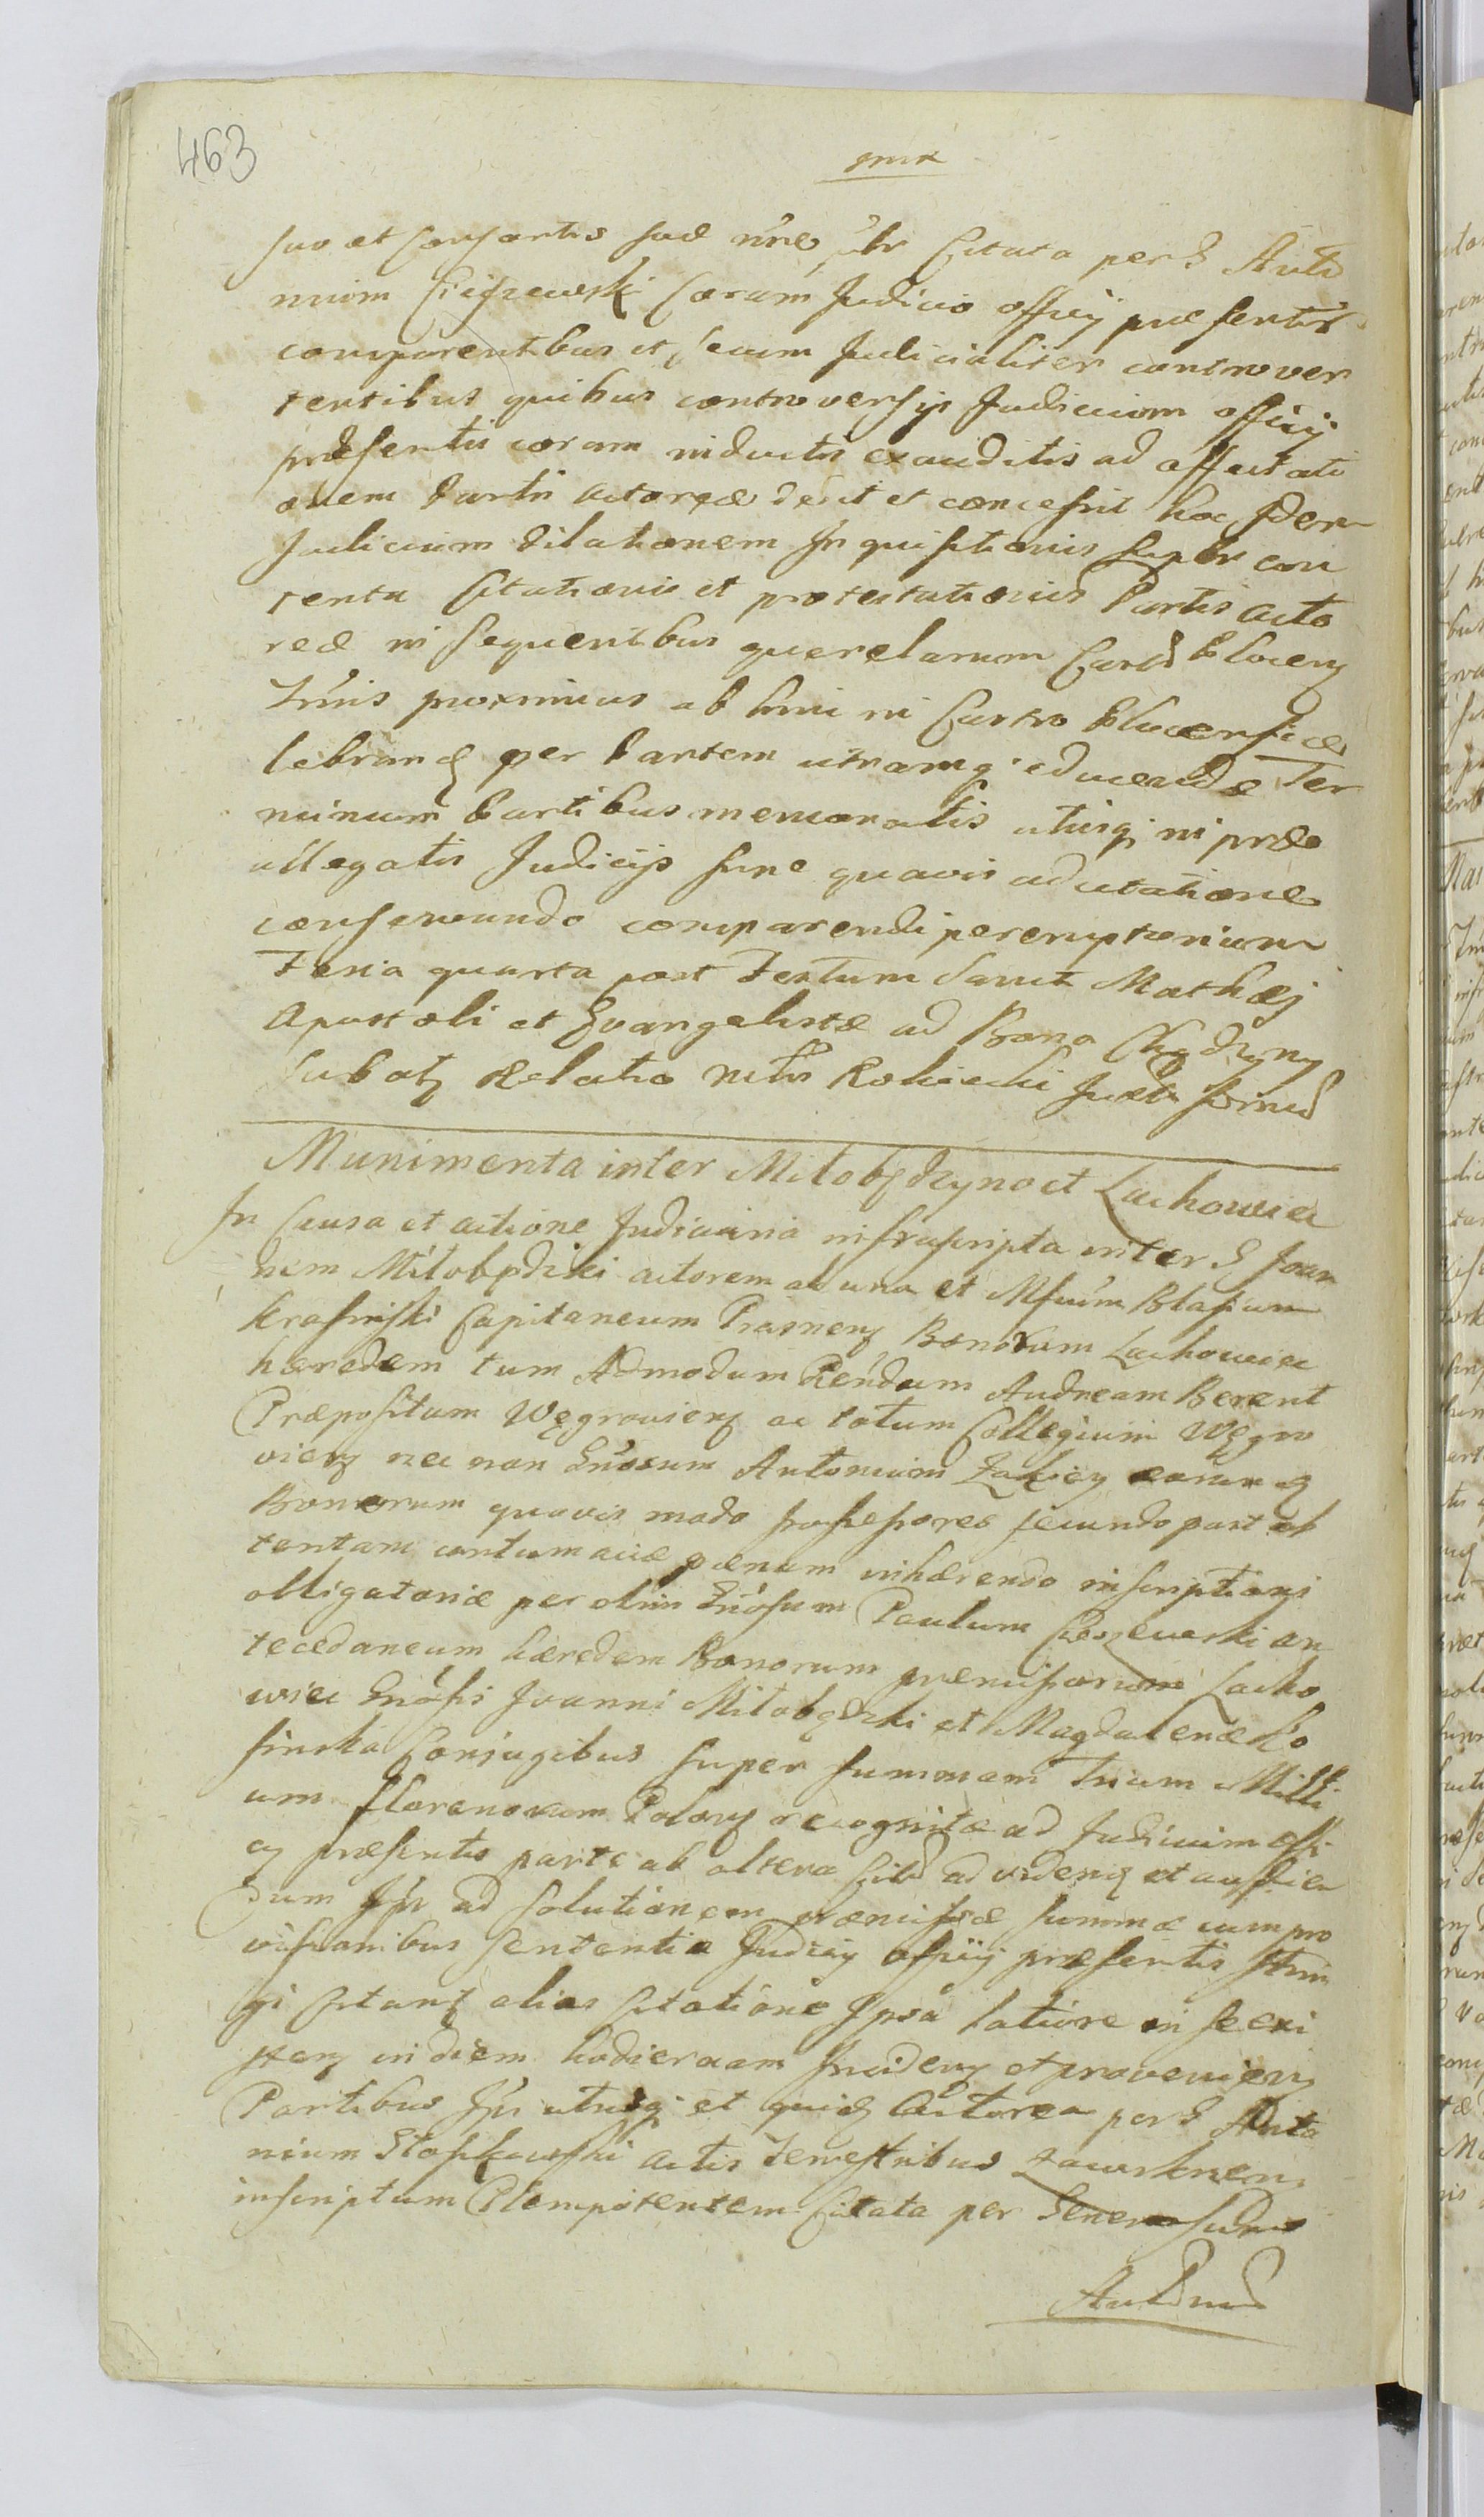 463
suo et Consortis suae nne
Citata per G Anto
nium Cieszewski Coram Judicio officij praesentis
comparentibus et secum Judicialiter controver
tentibus quibus controversijs Judicium officij
praesentis coram inductis exauditis ad affectati
onem Partis Actoreae dedit et concessit hoc
Judicium Dilationem Inquisitionis super con
tenta Citationis et protestationis Partis acto
reae in sequentibus querelarum Castr Plocen
Tmis proximius ab hinc in Castro Plocensi ce
lebrand per Partem utramq educendae Ter
minum Partibus memoratis utrisq in prae
allegatis Judicijs sine quavis adcitatione
conservando comparendi peremptorium
Feria quarta post Festum Sancti Mathaej
Apostoli et Evangelistae ad Bona Chądzyny
Subotz Relatio Mtris Rokicki Juxta formā
Munimenta inter Miłobędzyno et Lachowiec
In Causa et actione Judiciaria infrascripta inter G Joan
nem Miłobędzki actorem ab una et Mfcum Blasium
Krasinski Capitaneum Prasnen Bonorum Lachowiec
haeredem tum Admodum Rendum Andream Berent
Praepositum Węgrovien ac totum Collegium Węgro
vien nec non Gnosum Antonium Zaliey eorum q
Bonorum quovis modo possessores secundo post ob
tentam contumaciae paenam inhaerendo inscriptioni
obligatoriae per olim Gnosum Paulum Cieszewski an
tecedaneum haeredem Bonorum praemissorum Lacho
wiec Gnosis Joanni Miłobędzki et Magdalenae Ko
sinska Conjugibus super summam Trium Milli
um florenorum Polon recognitae ad Judicium offi
cij praesentis parte ab altera Citt ad videnq et audien
dum Ips ad solutionem praemissae summae cum pro
visionibus sententia Judicij officij praesentis strin
gi Citant alias Citatione Ipsa latiore in se exi
sten in diem hodiernam Inciden et provenien
Partibus Ips utrisq et quid Actorea per G Anto
nium Stoplkowski Actis Terrestribus Zawskrzen
inscriptum Plenipotentem Citata per Generosum
Andream